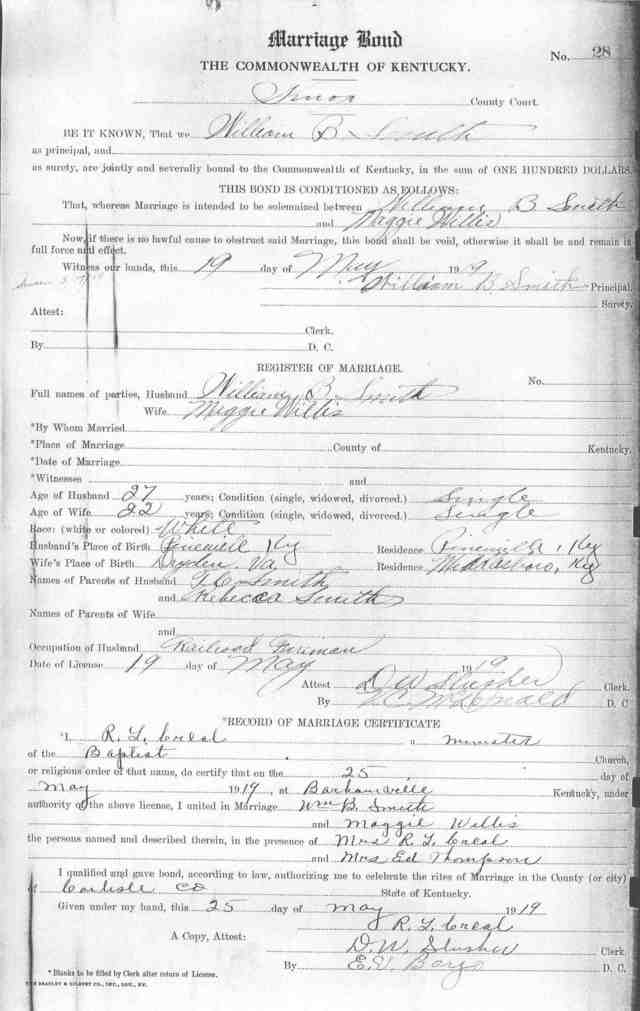 Marriage Bond
No. 28
THE COMMONWEALTH OF KENTUCKY.
Knox County Court.
BE IT KNOWN, That we William B Smith
as principal, and
as surety, are jointly and severally bound to the Commonwealth of Kentucky, in the sum of ONE HUNDRED DOLLARS.
THIS BOND IS CONDITIONED AS FOLLOWS:
That, whereas Marriage is intended to be solemnized between William B Smith
and Maggie Willis
Now, if there is no lawful cause to obstruct said Marriage, this bond shall be void, otherwise it shall be and remain in
full force and effect.
Witness our hands, this 19 day of May 1919
William B. Smith Principal.
Surety.
Attest:
Clerk.
By D. C.
REGISTER OF MARRIAGE.
No.
Full names of parties, Husband William B. Smith
Wife Maggie Willis
*By Whom Married
*Place of Marriage County of Kentucky.
*Date of Marriage
*Witnesses and
Age of Husband 27 years; Condition (single, widowed, divorced.) Single
Age of Wife 22 years; Condition (single, widowed, divorced.) Single
Race: (white or colored) White
Husband's Place of Birth Pineville Ky Residence Pineville, Ky
Wife's Place of Birth Dryden, Va Residence Middlesboro, Ky
Names of Parents of Husband Smith
and Rebecca Smith
Names of Parents of Wife
and
Occupation of Husband Railroad Fireman
Date of License 19 day of May 1919
Attest D W Slusher Clerk.
By McDonald D. C
*RECORD OF MARRIAGE CERTIFICATE
I, R. L. Creal a minister
of the Baptist Church,
or religious order of that name, do certify that on the 25 day of
May 1919, at Barbourville Kentucky, under
authority of the above license, I united in Marriage Wm B. Smith
and Maggie Willis
the persons named and described therein, in the presence of Mrs R. L. Creal
and Mrs Ed Thompson
I qualified and gave bond, according to law, authorizing me to celebrate the rites of Marriage in the County (or city)
of Carlisle Co State of Kentucky.
Given under my hand, this 25 day of May 1919
R. L. Creal
A Copy, Attest: D. W. Slusher Clerk
By D. C.
*Blanks to be filled by Clerk after return of License.
THE BRADLEY & GILBERT CO., INC., LOU., KY.